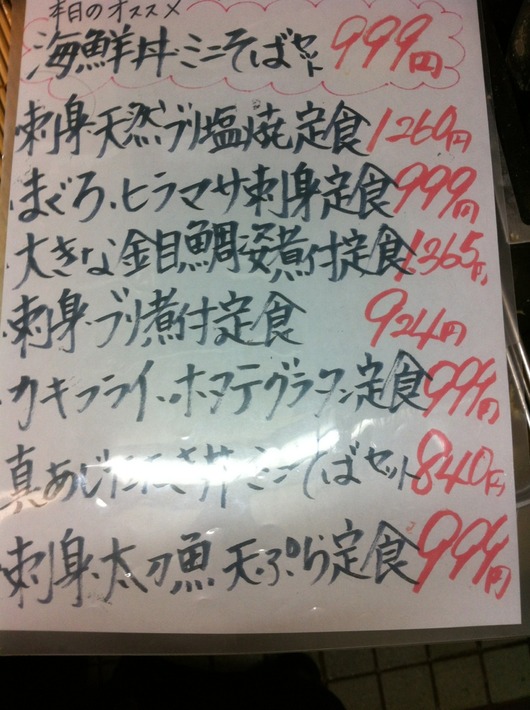 本日のオススメ
海鮮丼・ミニそばセット 999円
刺身・天然ブリ塩焼定食 1260円
・まぐろ・ヒラマサ刺身定食 999円
・大きな金目鯛姿煮付定食 1365円
・刺身・ブリ煮付定食 924円
・カキフライ・ホタテグラタン定食 999円
真あじたたき丼・ミニそばセット 840円
刺身・太刀魚天ぷら定食 999円